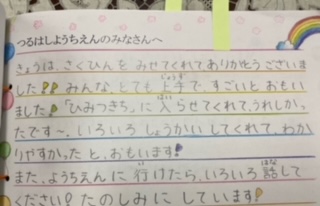 つるはしようちえんのみなさんへ
きょうは、さくひんを みせてくれてありがとうございま
した!?みんな、とても上手で、すごいとおもい
じょうず
ました!「ひみつきち」に入らせてくれて、うれしかっ
はい
たです~。いろいろしょうかいしてくれて、わか
りやすかったと、おもいます!
また、ようちえんに行けたら、いろいろ話して
い
はな
ください!たのしみにしています!